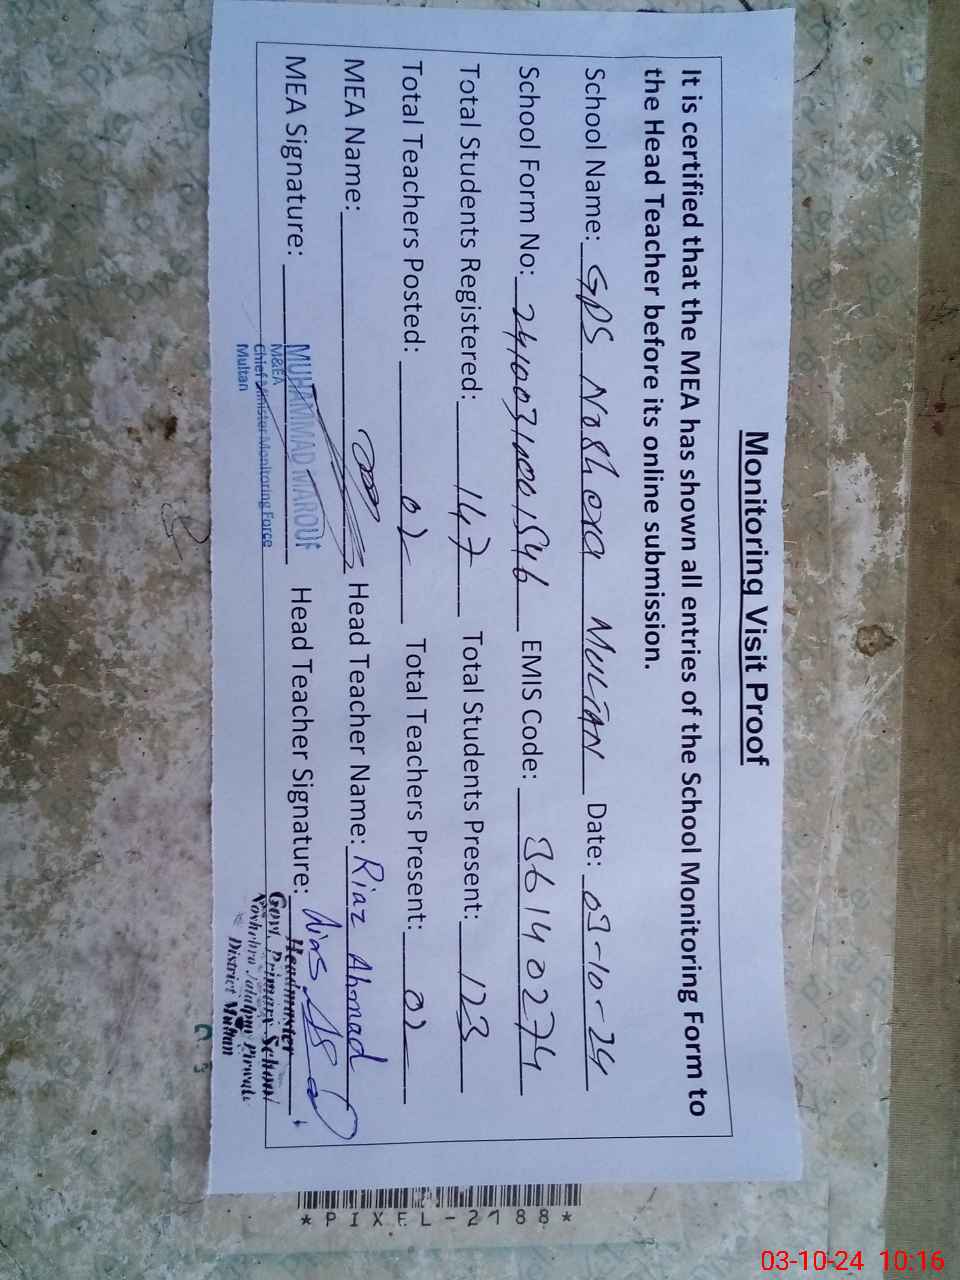 Monitoring Visit Proof
It is certified that the MEA has shown all entries of the School Monitoring Form to
the Head Teacher before its online submission.
School Name: GPS Noshera MULTAN Date: 03-10-24
School Form No: EMIS Code: 36140274
Total Students Registered: 147 Total Students Present: 123
Total Teachers Posted: 02 Total Teachers Present: 02
MEA Name: Head Teacher Name: Riaz Ahmad
MEA Signature: Head Teacher Signature:
MUHAMMAD MAROUF
M&EA
Chief Minister Monitoring Force
Multan
Headmaster
Govt. Primary School
District Multan
*PIXEL-2188*
03-10-24 10:16